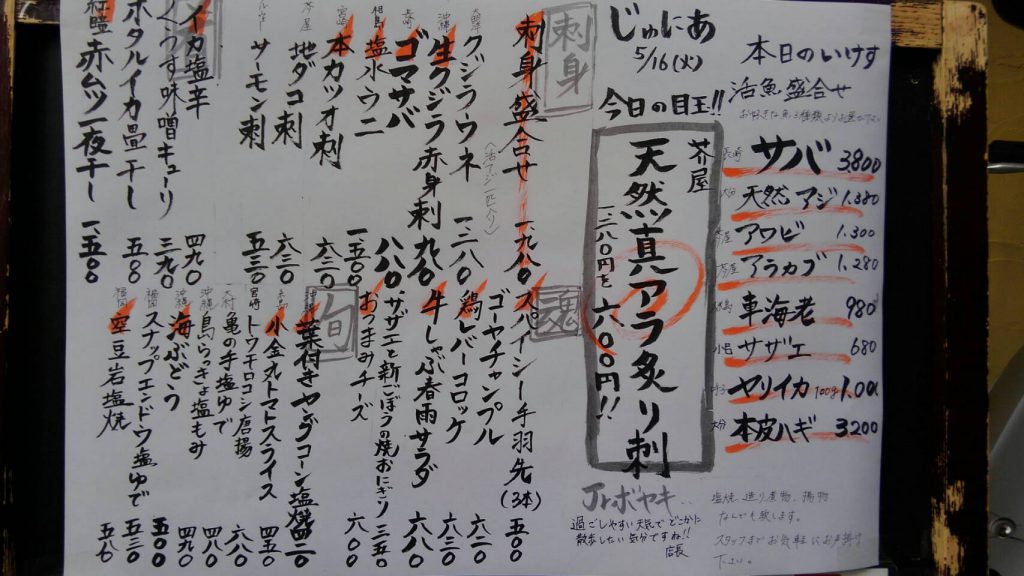 本日のいけす
活魚盛合せ
サバ 3800
天然アジ 1.380
アワビ 1.300
アラカブ 1.280
車海老 980
サザエ 680
ヤリイカ 100g 1.000
本皮ハギ 3200
塩焼、造り、煮物、揚物
なんでも致します。
スタッフまでお気軽にお声掛け
下さい。
じゅにあ
5/16(火)
今日の目玉!!
芥屋
天然真アラ炙り刺
一、二八〇円を六八〇〇円!!
Jr.ボヤキ...
過ごしやすい天気でどこかに
散歩したい気分ですね!!
店長
刺身
刺身盛合せ 一、九八〇
クジラウネ 一、二八〇
生クジラ赤身刺 九八〇
ゴマサバ 八八〇
相島 塩水ウニ 一、五〇〇
本カツオ刺 六三〇
地ダコ刺 六三〇
サモン刺 五三〇
イカ塩辛 四九〇
くらうす味噌キューリ 三九〇
ホタルイカ畳干し 五八〇
赤ムツ一夜干し 一、五〇〇
魂
スパイシー手羽先(3本) 五〇〇
ゴーヤチャンプル 六二〇
鶏レバーコロッケ 六三〇
牛しゃぶ春雨サラダ 六八〇
サザエと新ごぼうの焼おにぎり 三五〇
おつまみチーズ 六〇〇
旬
葉付きヤングコーン塩焼
小金丸トマトスライス 四五〇
トウモロコシ唐揚 六八〇
亀の手塩ゆで 四八〇
沖縄 島らっきょ塩もみ 四九〇
海ぶどう 五〇〇
スナップエンドウ塩ゆで 五三〇
空豆岩塩焼 五八〇